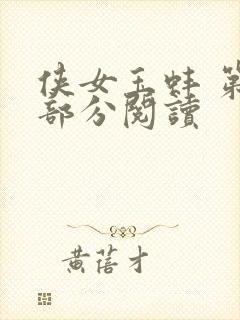 侠女玉蚌 第
部分閱讀
黃蓓才